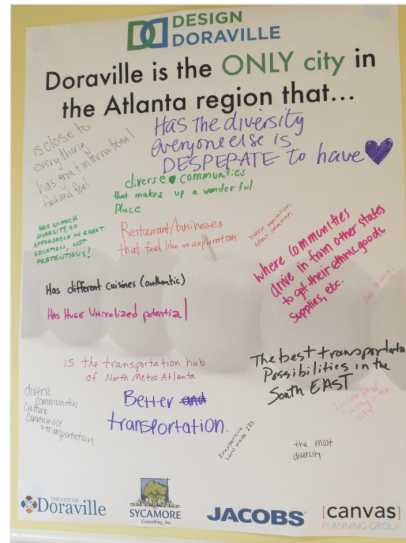 DESIGN
DORAVILLE
Doraville is the ONLY city in
the Atlanta region that...
is close to
everything
has great international
food and feel
HAS THE DIVERSITY
everyone else is
DESPERATE to have
diverse communities
that makes up a wonderful
place
HAS SO MUCH
DIVERSITY, SO
AFFORDABLE IN GREAT
LOCATION, NOT
PRETENTIOUS!
Restaurant/businesses
that feel like an exploration
where communities
drive in from other states
to get their ethnic goods
supplies, etc.
Has different cuisines (authentic)
Has HUGE Unrealized potential
is the transportation hub
of North Metro Atlanta
The best transportation
Possibilities in the
South EAST
diverse
communities
culture
commerce
transportation
Better and
transportation.
Inexpensive
land inside 285
the most
diversity
THE CITY OF
Doraville
SYCAMORE
Consulting, Inc.
JACOBS
[canvas]
PLANNING GROUP